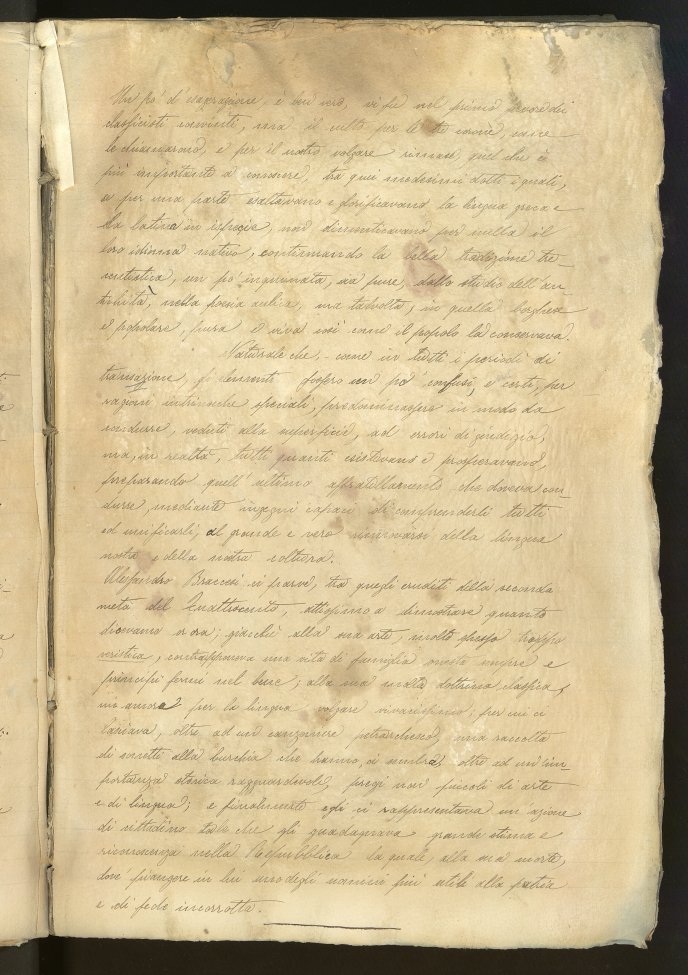 Un po' d'esagerazione, è ben vero, vi fu nel primo fervore dei
classicisti convinti, ma il culto per le tre corone, come
le chiamarono, e per il nostro volgare rimase, quel che è
più importante a conoscere, tra quei medesimi dotti i quali,
se per una parte esaltavano e glorificavano la lingua greca e
la latina in ispecie, non dimenticavano per nulla il
loro idioma nativo, continuando la bella tradizione tre-
centistica, un po' inquinata, sia pure, dallo studio dell'an-
tichità, nella poesia aulica, ma talvolta, in quella borghese
e popolare, pura e viva così come il popolo la conservava.
Naturale che, - come in tutti i periodi di
transazione, gli elementi fossero un po' confusi, e certi, per
ragioni intrinseche speciali, predominassero in modo da
condurre, veduti alla superficie, ad errori di giudizio,
ma, in realtà, tutti quanti esistevano e prosperavano,
preparando quell'ultimo affratellamento che doveva con-
durre, mediante ingegni capaci di comprenderli tutti
ed unificarli, al grande e vero rinnovarsi della lingua
nostra e della nostra coltura.
Alessandro Braccesi ci parve, tra quegli eruditi della seconda
metà del Quattrocento, attissimo a dimostrare quanto
dicevamo or ora; giacchè alla sua arte, molto spesso troppo
veristica, contrapponeva una vita di famiglia onesta sempre e
principi fermi nel bene; alla sua molta dottrina classica,
un amore per la lingua volgare vivacissimo; per cui ci
lasciava, oltre ad un canzoniere petrarchesco, una raccolta
di sonetti alla burchia che hanno, ci sembra, oltre ad un'im-
portanza storica ragguardevole, pregi non piccoli di arte
e di lingua; e finalmente egli ci rappresentava un'azione
di cittadino tale che gli guadagnava grande stima e
riconoscenza nella Repubblica la quale, alla sua morte,
dovè piangere in lui uno degli uomini più utili alla patria
e di fede incorrotta.